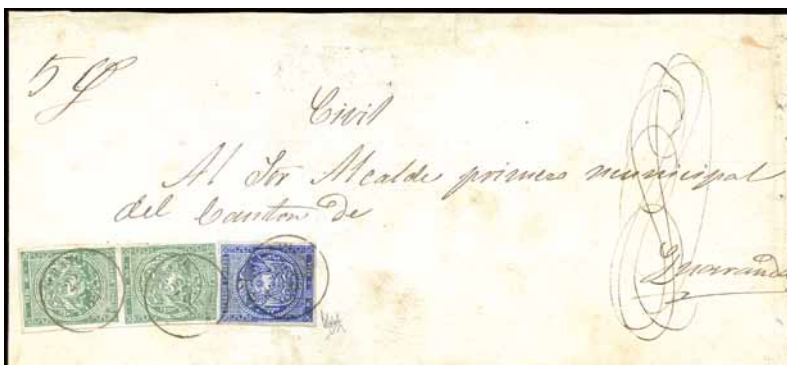 5
Civil
Al Sor Alcalde primero municipal
del Canton de
Guaranda